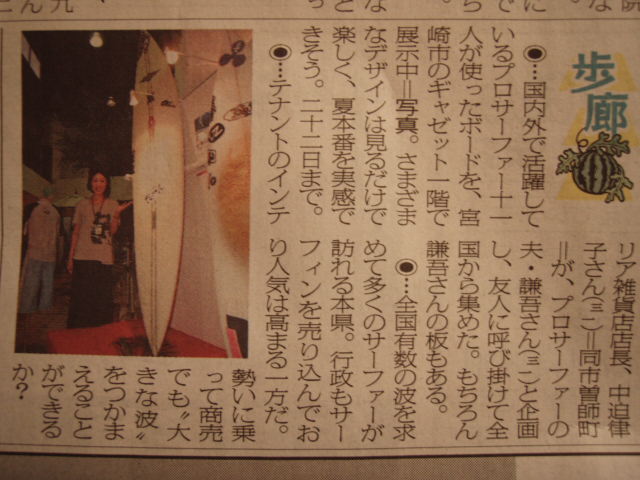 歩廊
●…国内外で活躍して
いるプロサーファー十一
人が使ったボードを、宮
崎市のギャゼット一階で
展示中＝写真。さまざま
なデザインは見るだけで
楽しく、夏本番を実感で
きそう。二十二日まで。
●…テナントのインテ
リア雑貨店店長、中迫律
子さん(三二)＝同市曽師町
＝が、プロサーファーの
夫・謙吾さん(三二)と企画
し、友人に呼び掛けて全
国から集めた。もちろん
謙吾さんの板もある。
●…全国有数の波を求
めて多くのサーファーが
訪れる本県。行政もサー
フィンを売り込んでお
り人気は高まる一方だ。
勢いに乗
って商売
でも〝大
きな波〟
をつかま
えること
ができる
か？